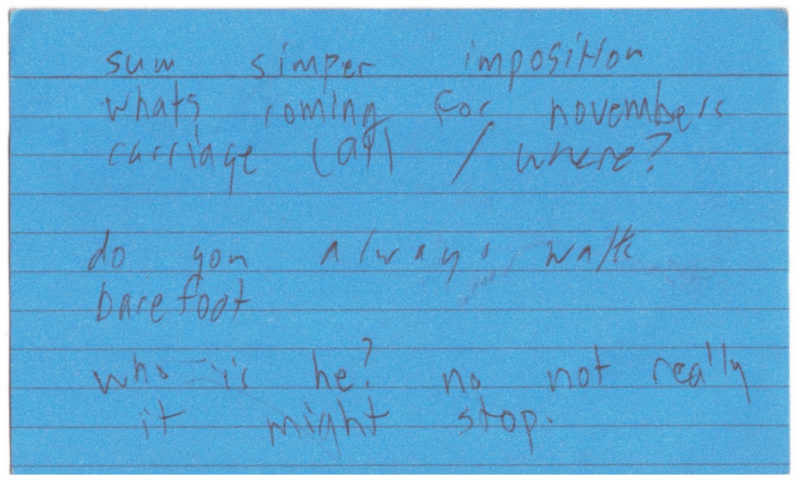 sum simper imposition
whats coming for novembers
carriage (at) / where?
do you always walk
barefoot
who is he? no not really
it might stop.